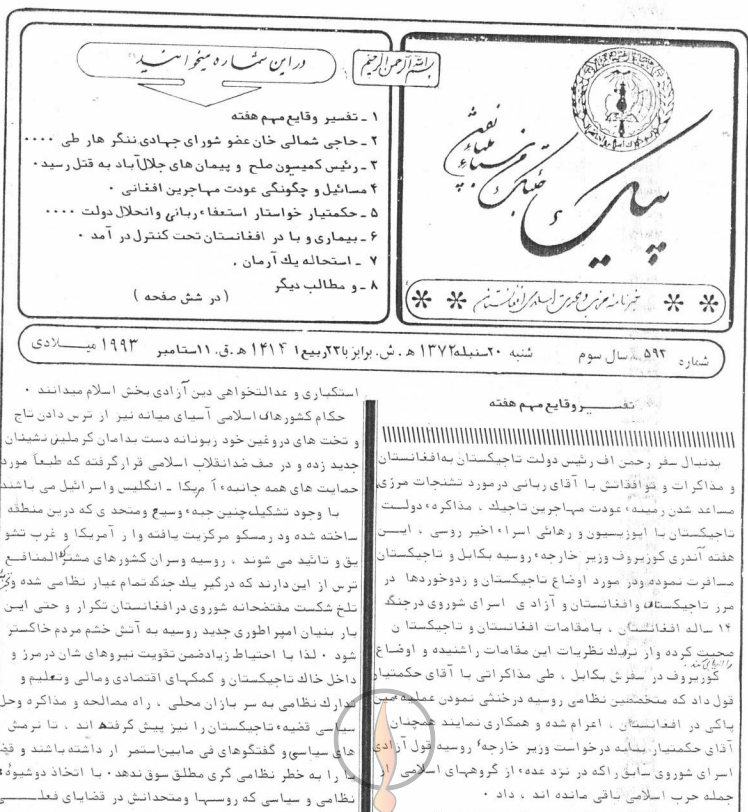 بسم الله الرحمن الرحیم
پیک
در این شماره میخوانید
۱ ـ تفسیر وقایع مهم هفته
۲ ـ حاجی شمالی خان عضو شورای جهادی ننگرهار طی ....
۳ ـ رئیس کمیسون صلح و پیمان های جلال‌آباد به قتل رسید .
۴ مسائیل و چگونگی عودت مهاجرین افغانی .
۵ ـ حکمتیار خواستار استعفاء ربانی وانحلال دولت ....
۶ ـ بیماری و با در افغانستان تحت کنترل در آمد .
۷ ـ استحاله یك آرمان .
۸ ـ و مطالب دیگر
( در شش صفحه )
شماره ۵۹۲ سال سوم شنبه ۲۰سنبله۱۳۷۲ ه . ش. برابر با۲۳ربیع۱ ۱۴۱۴ ه .ق. ۱۱ستامبر ۱۹۹۳ میـلادی
تفسیر وقایع مهم هفته
بدنبال سفر رحمن اف رئیس دولت تاجیکستان به افغانستان
و مذاکرات و توافقاتش با آقای ربانی درمورد تشنجات مرزی
مساعد شدن زمینهء عودت مهاجرین تاجیك ، مذاکرهء دولت
تاجیکستان با اپوزیسیون و رهائی اسراء اخیر روسی ، ایـن
هفته آندری کوزیروف وزیر خارجهء روسیه بکابل و تاجیکستان
مسافرت نموده ودر مورد اوضاع تاجیکستان و زدوخوردها در
مرز تاجیکستان وافغانستان و آزادی اسرای شوروی درجنگ
۱۴ ساله افغانستان ، بامقامات افغانستان و تاجیکستان
صحبت کرده واز نزدیك نظریات این مقامات راشنیده و اوضاع
را ارزیابی
کوزیروف در سفرش بکابل ، طی مذاکراتی با آقای حکمتیار
قول داد که متخصصین نظامی روسیه درخنثی نمودن عملیه مین
پاکی در افغانستان ، اعزام شده و همکاری نمایند همچنان
آقای حکمتیار بنابه درخواست وزیر خارجهء روسیه قول آزادی
اسرای شوروی سابق راکه در نزد عدهء از گروههای اسلامی از
جمله حزب اسلامی باقی مانده اند ، داد .
استکباری و عدالتخواهی دین آزادی بخش اسلام میدانند .
حکام کشورهای اسلامی آسیای میانه نیز از ترس دادن تاج
و تخت های دروغین خود زبونانه دست بدامان کرملین نشینان
جدید زده و در صف ضدانقلاب اسلامی قرارگرفته که طبعاً مورد
حمایت های همه جانبهء آمریکا ـ انگلیس واسرائیل می باشند
با وجود تشکیل چنین جبهء وسیع ومتحدی که درین منطقه
ساخته شده ودر مسکو مرکزیت یافته واز آمریکا و غرب تشو
یق و تائید می شوند ، روسیه وسران کشورهای مشترک المنافع
ترس از این دارند که درگیر یك جنگ تمام عیار نظامی شده و
تلخ شکست مفتضحانه شوروی درافغانستان تکرار و حتی ایـن
بار بنیان امپراطوری جدید روسیه به آتش خشم مردم خاکستر
شود . لذا با احتیاط زیادضمن تقویت نیروهای شان درمرز و
داخل خاك تاجیکستان و کمکهای اقتصادی ومالی وتعلیم و
تدارك نظامی به سربازان محلی ، راه مصالحه و مذاکره وحل
سیاسی قضیهء تاجیکستان را نیز پیش گرفته اند ، تا نرمش
های سیاسی و گفتگوهای فی مابین استمرار داشته باشند و
را به خطر نظامی گری مطلق سوق ندهد . با اتخاذ دوشیوهء
نظامی و سیاسی که روسها ومتحدانش در قضایای فعلـی